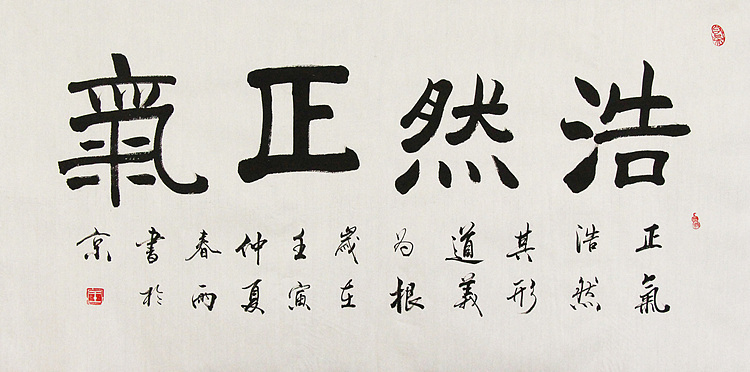 浩然正氣
正氣
浩然
其形
道義
为根
歲在
壬寅
仲夏
春雨
書於
京